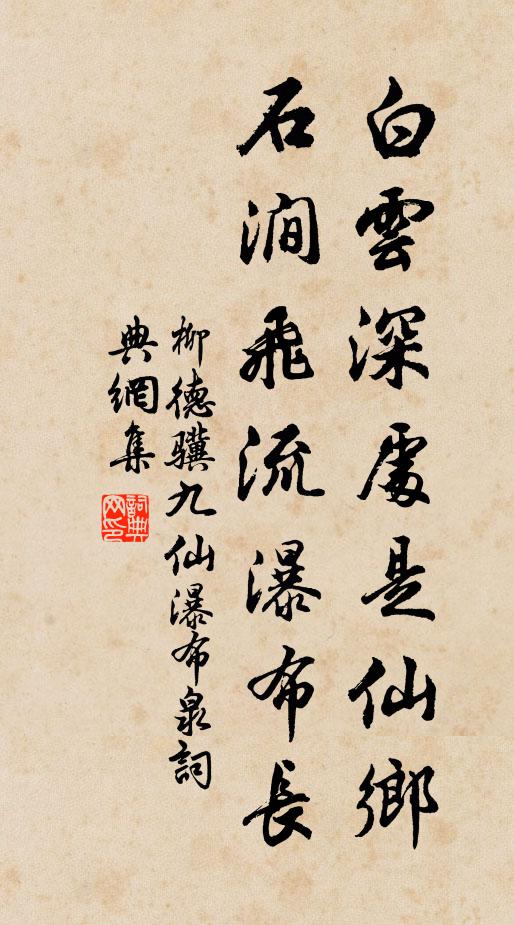 白雲深處是仙鄉
石澗飛流瀑布長
柳德骥九仙瀑布泉詞
典網集
詞典
网印